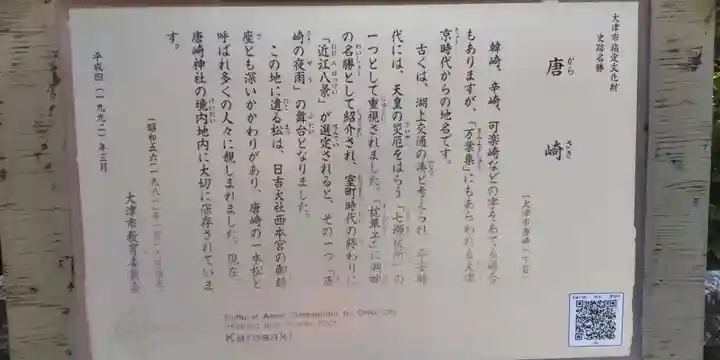 大津市指定文化財
史跡名勝
唐崎
からさき
(大津市唐崎一丁目)
韓崎、辛崎、可楽崎などの字をあてる場合
もありますが、「万葉集」にもあらわれる大津
京時代からの地名です。
古くは、湖上交通の湊と考えられ、平安時
代には、天皇の災厄をはらう「七瀬祓所」の
一つとして重視されました。「枕草子」に湖畔
の名勝として紹介され、室町時代の終わりに
「近江八景」が選定されると、その一つ「唐
崎の夜雨」の舞台となりました。
この地に遺る松は、日吉大社西本宮の御鎮
座とも深いかかわりがあり、唐崎の一本松と
呼ばれ多くの人々に親しまれました。現在、
唐崎神社の境内地内に大切に保存されていま
す。
平成四(一九九二)年三月
大津市教育委員会
Cultural Asset Designated by Otsu City
Karasaki